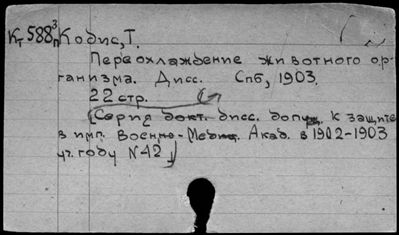 Кт 588 3/п Кодис, Т.
Переохлаждение животного ор-
ганизма. Дисс. Спб, 1903.
22 стр.
(Серия докт. дисс. допущ. к защите
в имп. Военно-Медиц. Акад. в 1902-1903
уч. году N 42)